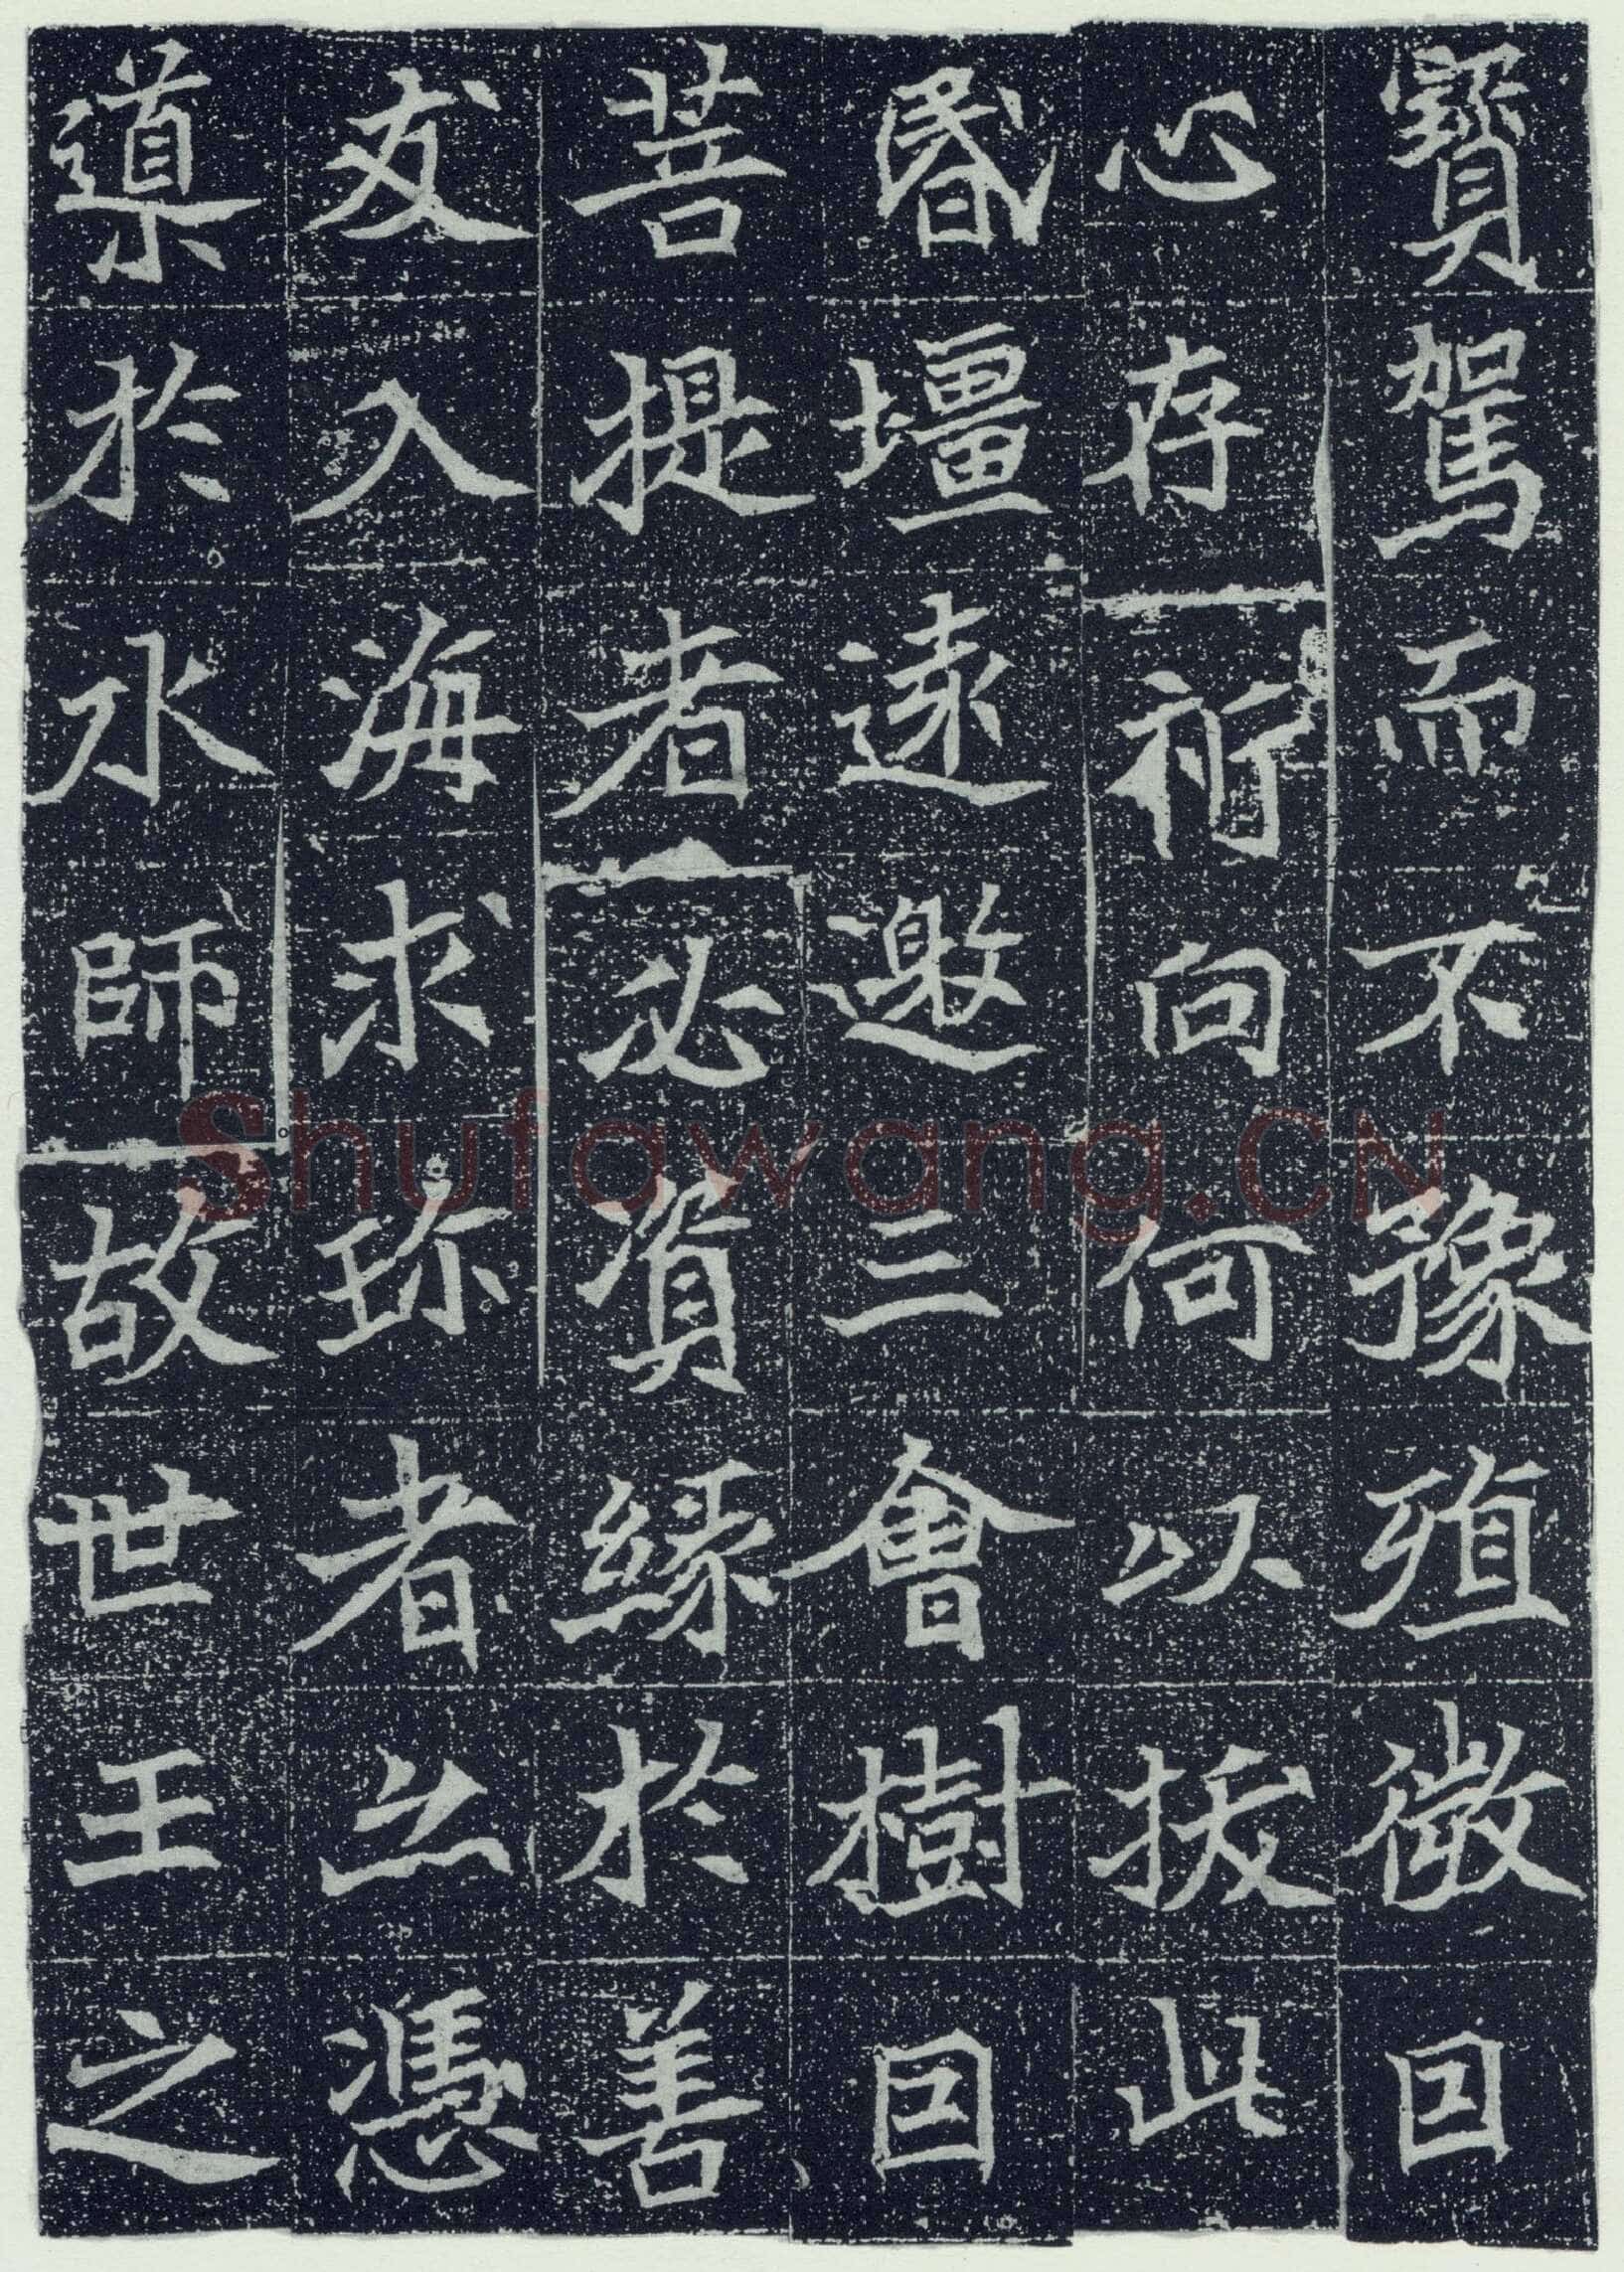 寳駕而不豫殖微囙
心存祈向何以拔此
昬壃遠邀三會樹囙
菩提者必資緣於善
友入海求珎者必憑
導於水師故世王之
Shufawang.CN